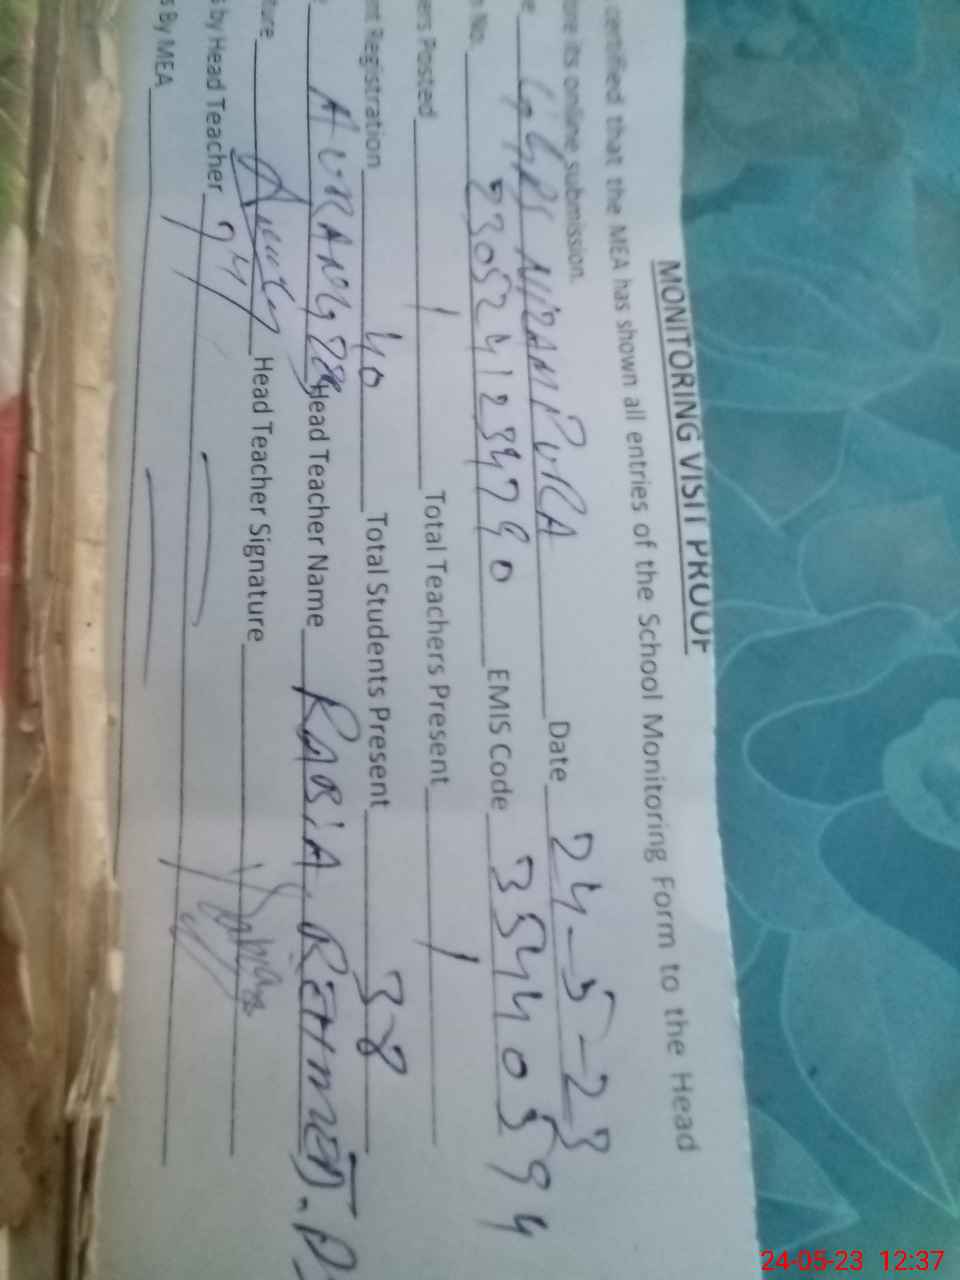 MONITORING VISIT PROOF
certified that the MEA has shown all entries of the School Monitoring Form to the Head
ore its online submission.
GGPS NIZAMPURA Date 24-5-23
n No. EMIS Code 35440594
ers Posted 1 Total Teachers Present 1
nt Registration 40 Total Students Present 38
AURANGZEB Head Teacher Name RABIA. REHMET.
ture Head Teacher Signature
s by Head Teacher
s By MEA
24-05-23 12:37